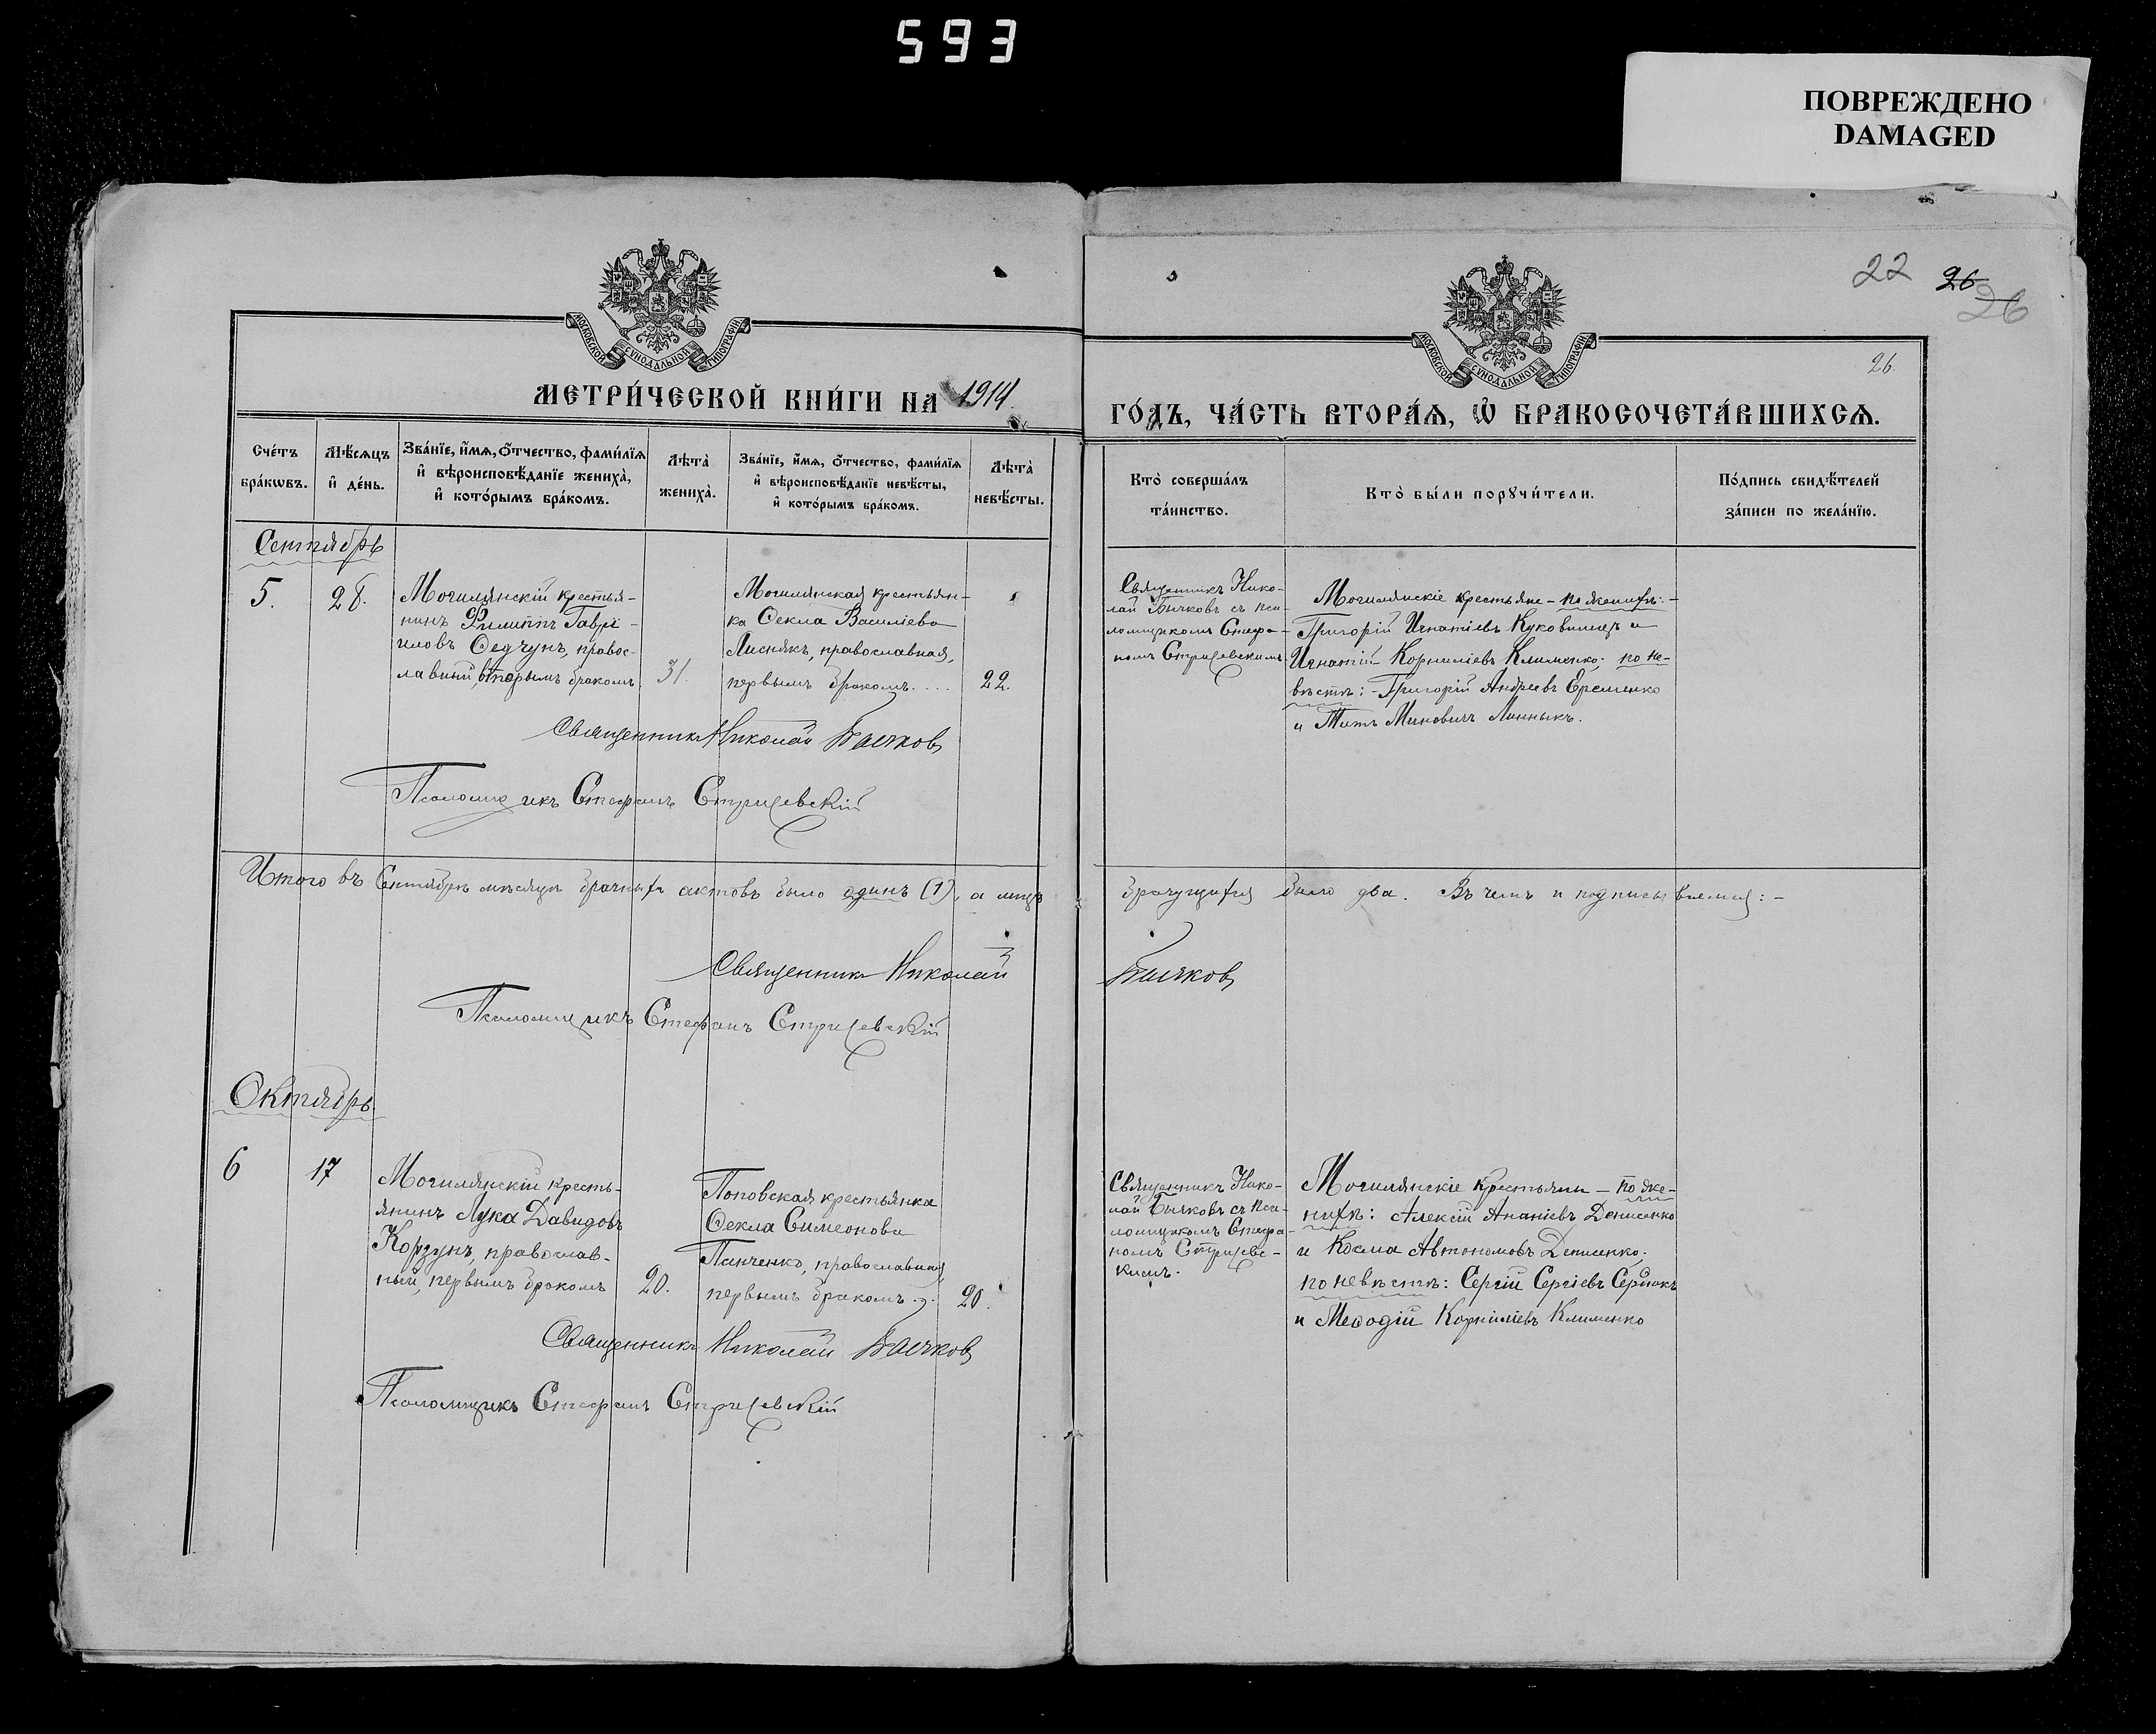 593
ПОВРЕЖДЕНО
DAMAGED
22 26
26
26.
МОСКОВСКОЙ СѴНОДАЛЬНОЙ ТИПОГРАФІИ
МОСКОВСКОЙ СѴНОДАЛЬНОЙ ТИПОГРАФІИ
МЕТРИ́ЧЕСКОЙ КНИ́ГИ НА 1914
ГО́ДЪ, ЧА́СТЬ ВТОРА́Ѧ, Ѽ БРАКОСОЧЕТА́ВШИХСѦ.
Сче́тъ
бра́кѡвъ.
Мѣ́сѧцъ
и҆ де́нь.
Зва́нїе, и҆́мѧ, ѻ҆́тчество, фами́лїѧ
и҆ вѣроисповѣ́данїе жениха̀,
и҆ кото́рымъ бра́комъ.
Лѣта̀
жениха̀.
Зва́нїе, и҆́мѧ, ѻ҆́тчество, фами́лїѧ
и҆ вѣроисповѣ́данїе невѣ́сты,
и҆ кото́рымъ бра́комъ.
Лѣта̀
невѣ́сты.
Кто̀ соверша́лъ
та́инство.
Кто̀ бы́ли порꙋчи́тели.
По́дпись свидѣ́телей
за́писи по жела́нїю.
Сентябрь
5.
28.
Могилянскій крестья-
нинъ Филиппъ Гаврі-
иловъ Ѳедчунъ, правос-
лавный, вторымъ бракомъ
31.
Могилянская крестьян-
ка Ѳекла Василіева
Лиснякъ, православная,
первымъ бракомъ....
22.
Священникъ Нико-
лай Бычковъ съ пса-
ломщикомъ Стефа-
номъ
Могилянскіе крестьяне - по женихѣ: -
Григорій Игнатіевъ Куковинецъ и
Игнатій Корниліевъ Клименко; по не-
вѣстѣ: - Григорій Андреевъ Еременко
и Титъ Миновичъ Линникъ.
Священникъ Николай Бычковъ
Псаломщикъ Стефанъ
Итого въ Сентябрѣ мѣсяцѣ брачныхъ актовъ было одинъ (1), а лицъ
брачущихся было два. Въ чемъ и подписываемся: -
Священникъ Николай
Бычковъ
Псаломщикъ Стефанъ
Октябрь.
6
17
Могилянскій кресть-
янинъ Лука Давидовъ
Корзунъ, православ-
ный, первымъ бракомъ
20.
Поповская крестьянка
Ѳекла Симеонова
Панченко, православная,
первымъ бракомъ..
20.
Священникъ Нико-
лай Бычковъ съ пса-
ломщикомъ Стефа-
номъ
Могилянскіе крестьяне - по же-
нихѣ: Алексій Ананіевъ Денисенко
и Косма Автономовъ Денисенко.
по невѣстѣ: Сергій Сергіевъ Сердюкъ
и Меѳодій Корниліевъ Клименко
Священникъ Николай Бычковъ
Псаломщикъ Стефанъ